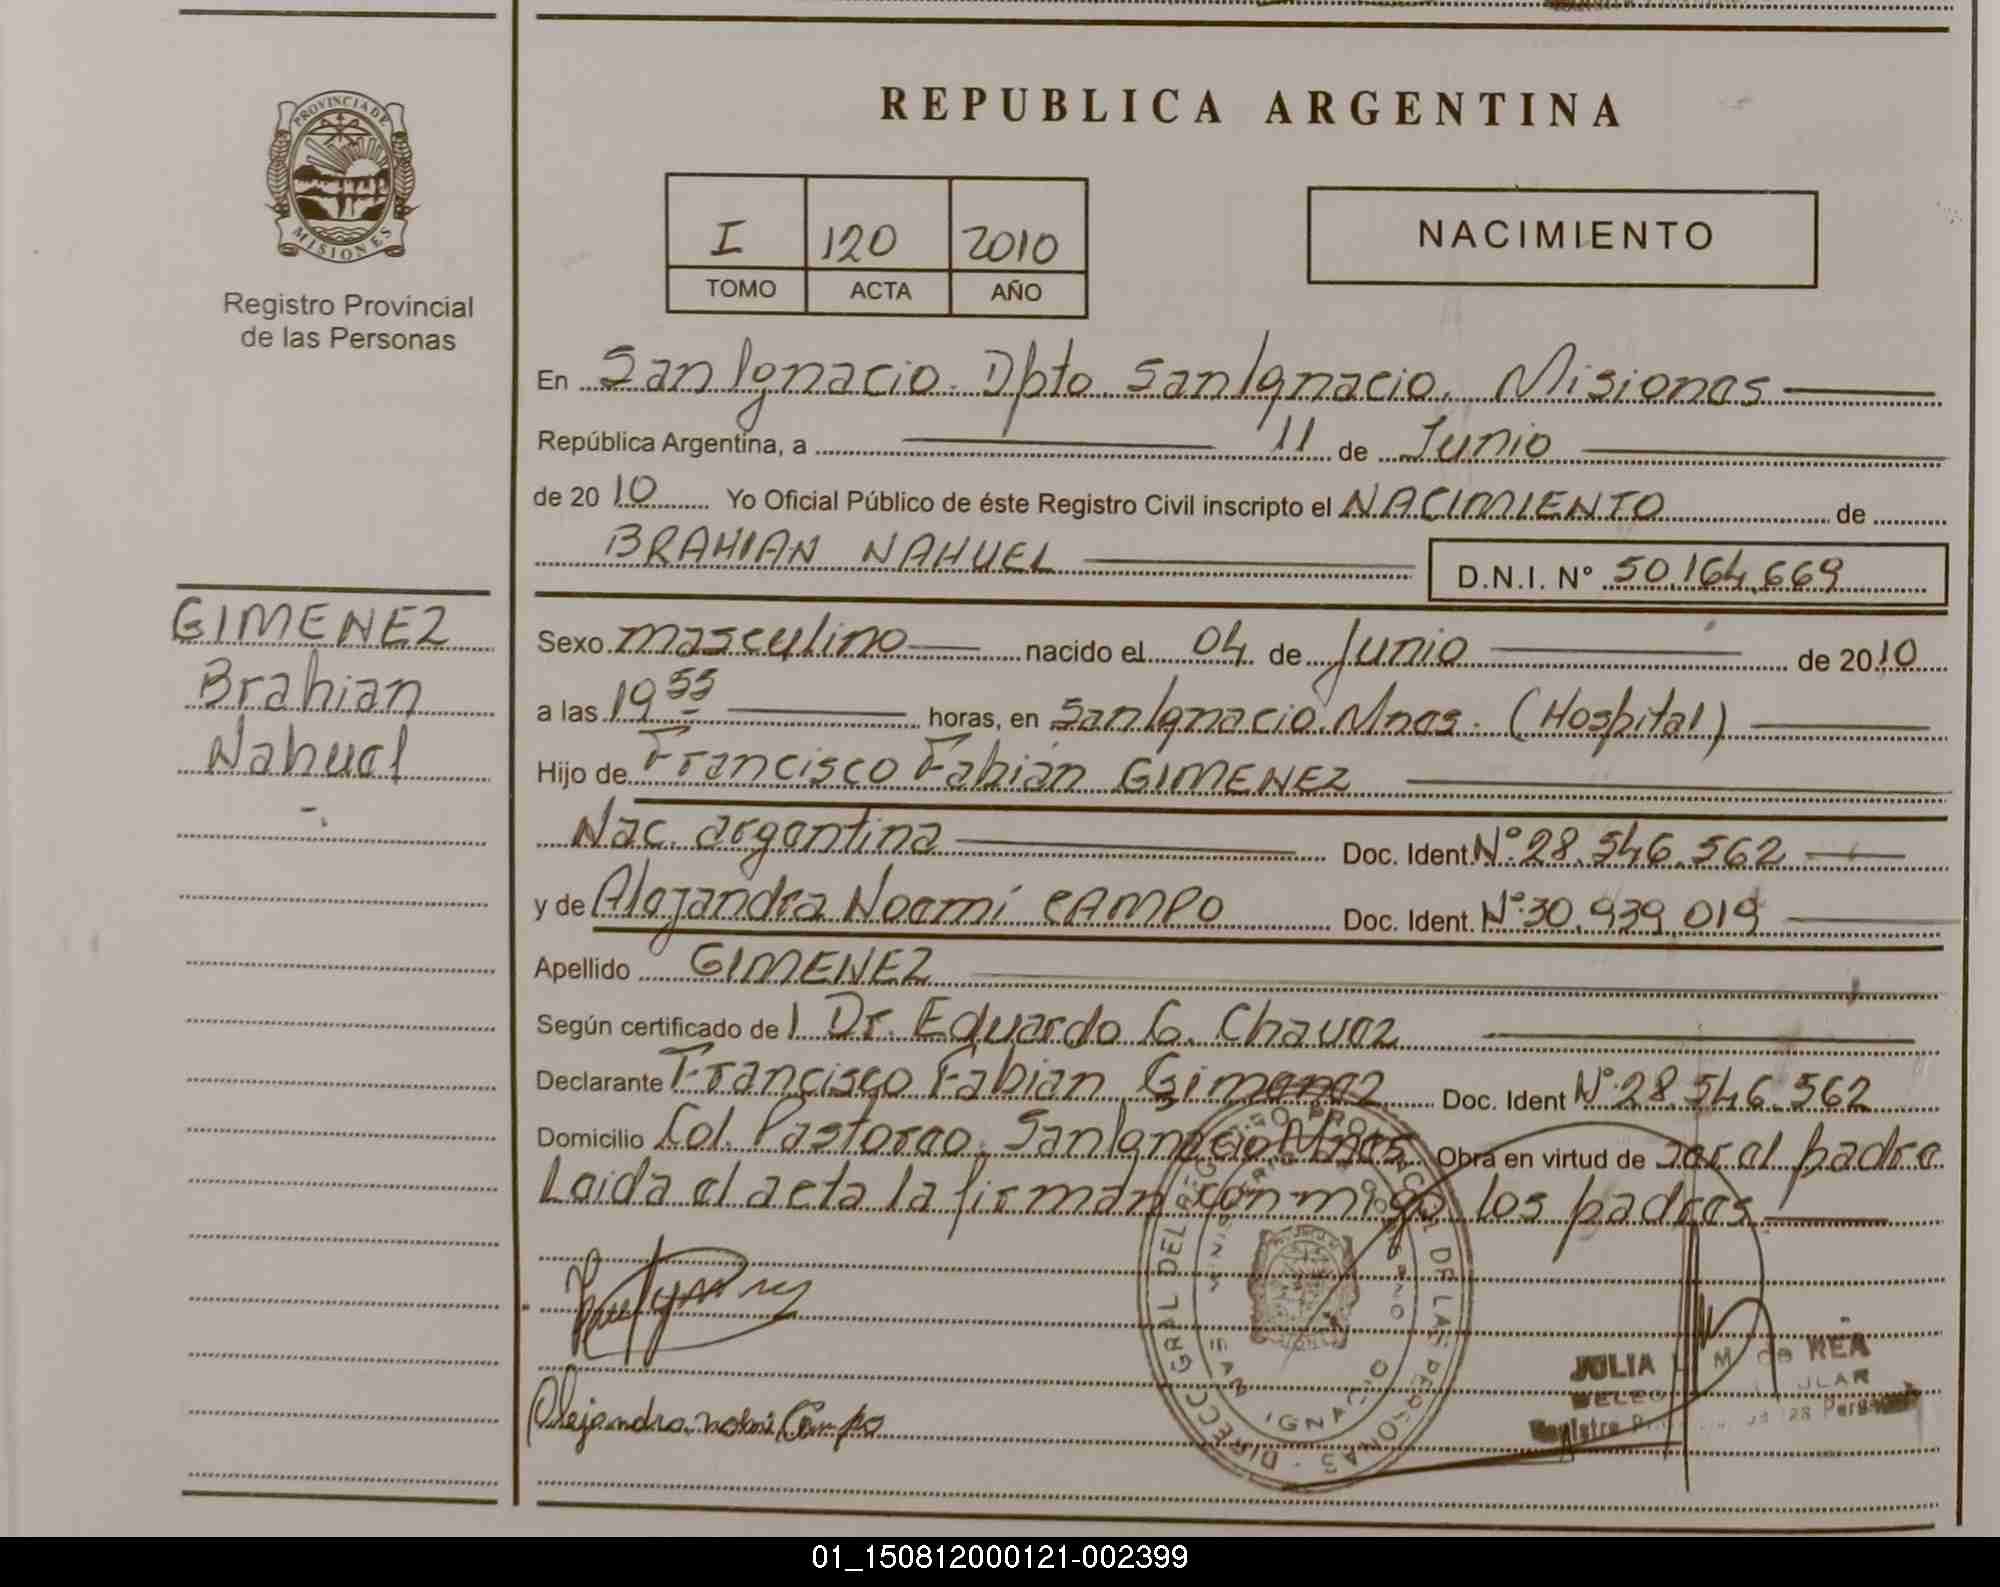 PROVINCIA DE
MISIONES
Registro Provincial
de las Personas
GIMENEZ
Brahian
Nahuel
REPUBLICA ARGENTINA
I 120 2010
TOMO ACTA AÑO
NACIMIENTO
En San Ignacio. Dpto. San Ignacio. Misiones
República Argentina, a 11 de Junio
de 2010 Yo Oficial Público de éste Registro Civil inscripto el NACIMIENTO de
BRAHIAN NAHUEL D.N.I. N° 50.164.669
Sexo masculino nacido el 04 de Junio de 2010
a las 19 55 horas, en San Ignacio. Mnes. (Hospital)
Hijo de Francisco Fabián GIMENEZ
Nac. argentina Doc. Ident. N° 28.546.562
y de Alejandra Noemí CAMPO Doc. Ident. N° 30.939.019
Apellido GIMENEZ
Según certificado del Dr. Eduardo G. Chavez
Declarante Francisco Fabian Gimenez Doc. Ident N° 28.546.562
Domicilio Col. Pastoreo. San Ignacio Mnes Obra en virtud de ser el padre
Leida el acta la firman conmigo los padres
Alejandra noemi Campo
DIRECC GRAL DEL REGISTRO PROVINCIAL DE LAS PERSONAS
SAN IGNACIO
JULIA M de REA
01_150812000121-002399